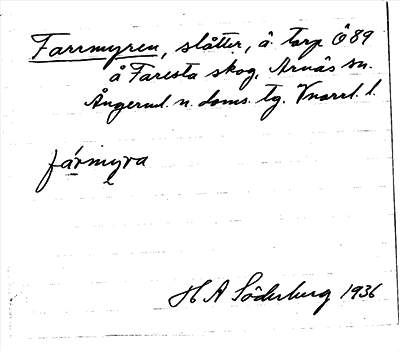 Farrmyren, slåtter, å torp Ö 89
å Faresta skog, Arnäs sn.
Ångerml. n. doms. tg. Vnorrl. l.
fármyra
H A Söderberg 1936